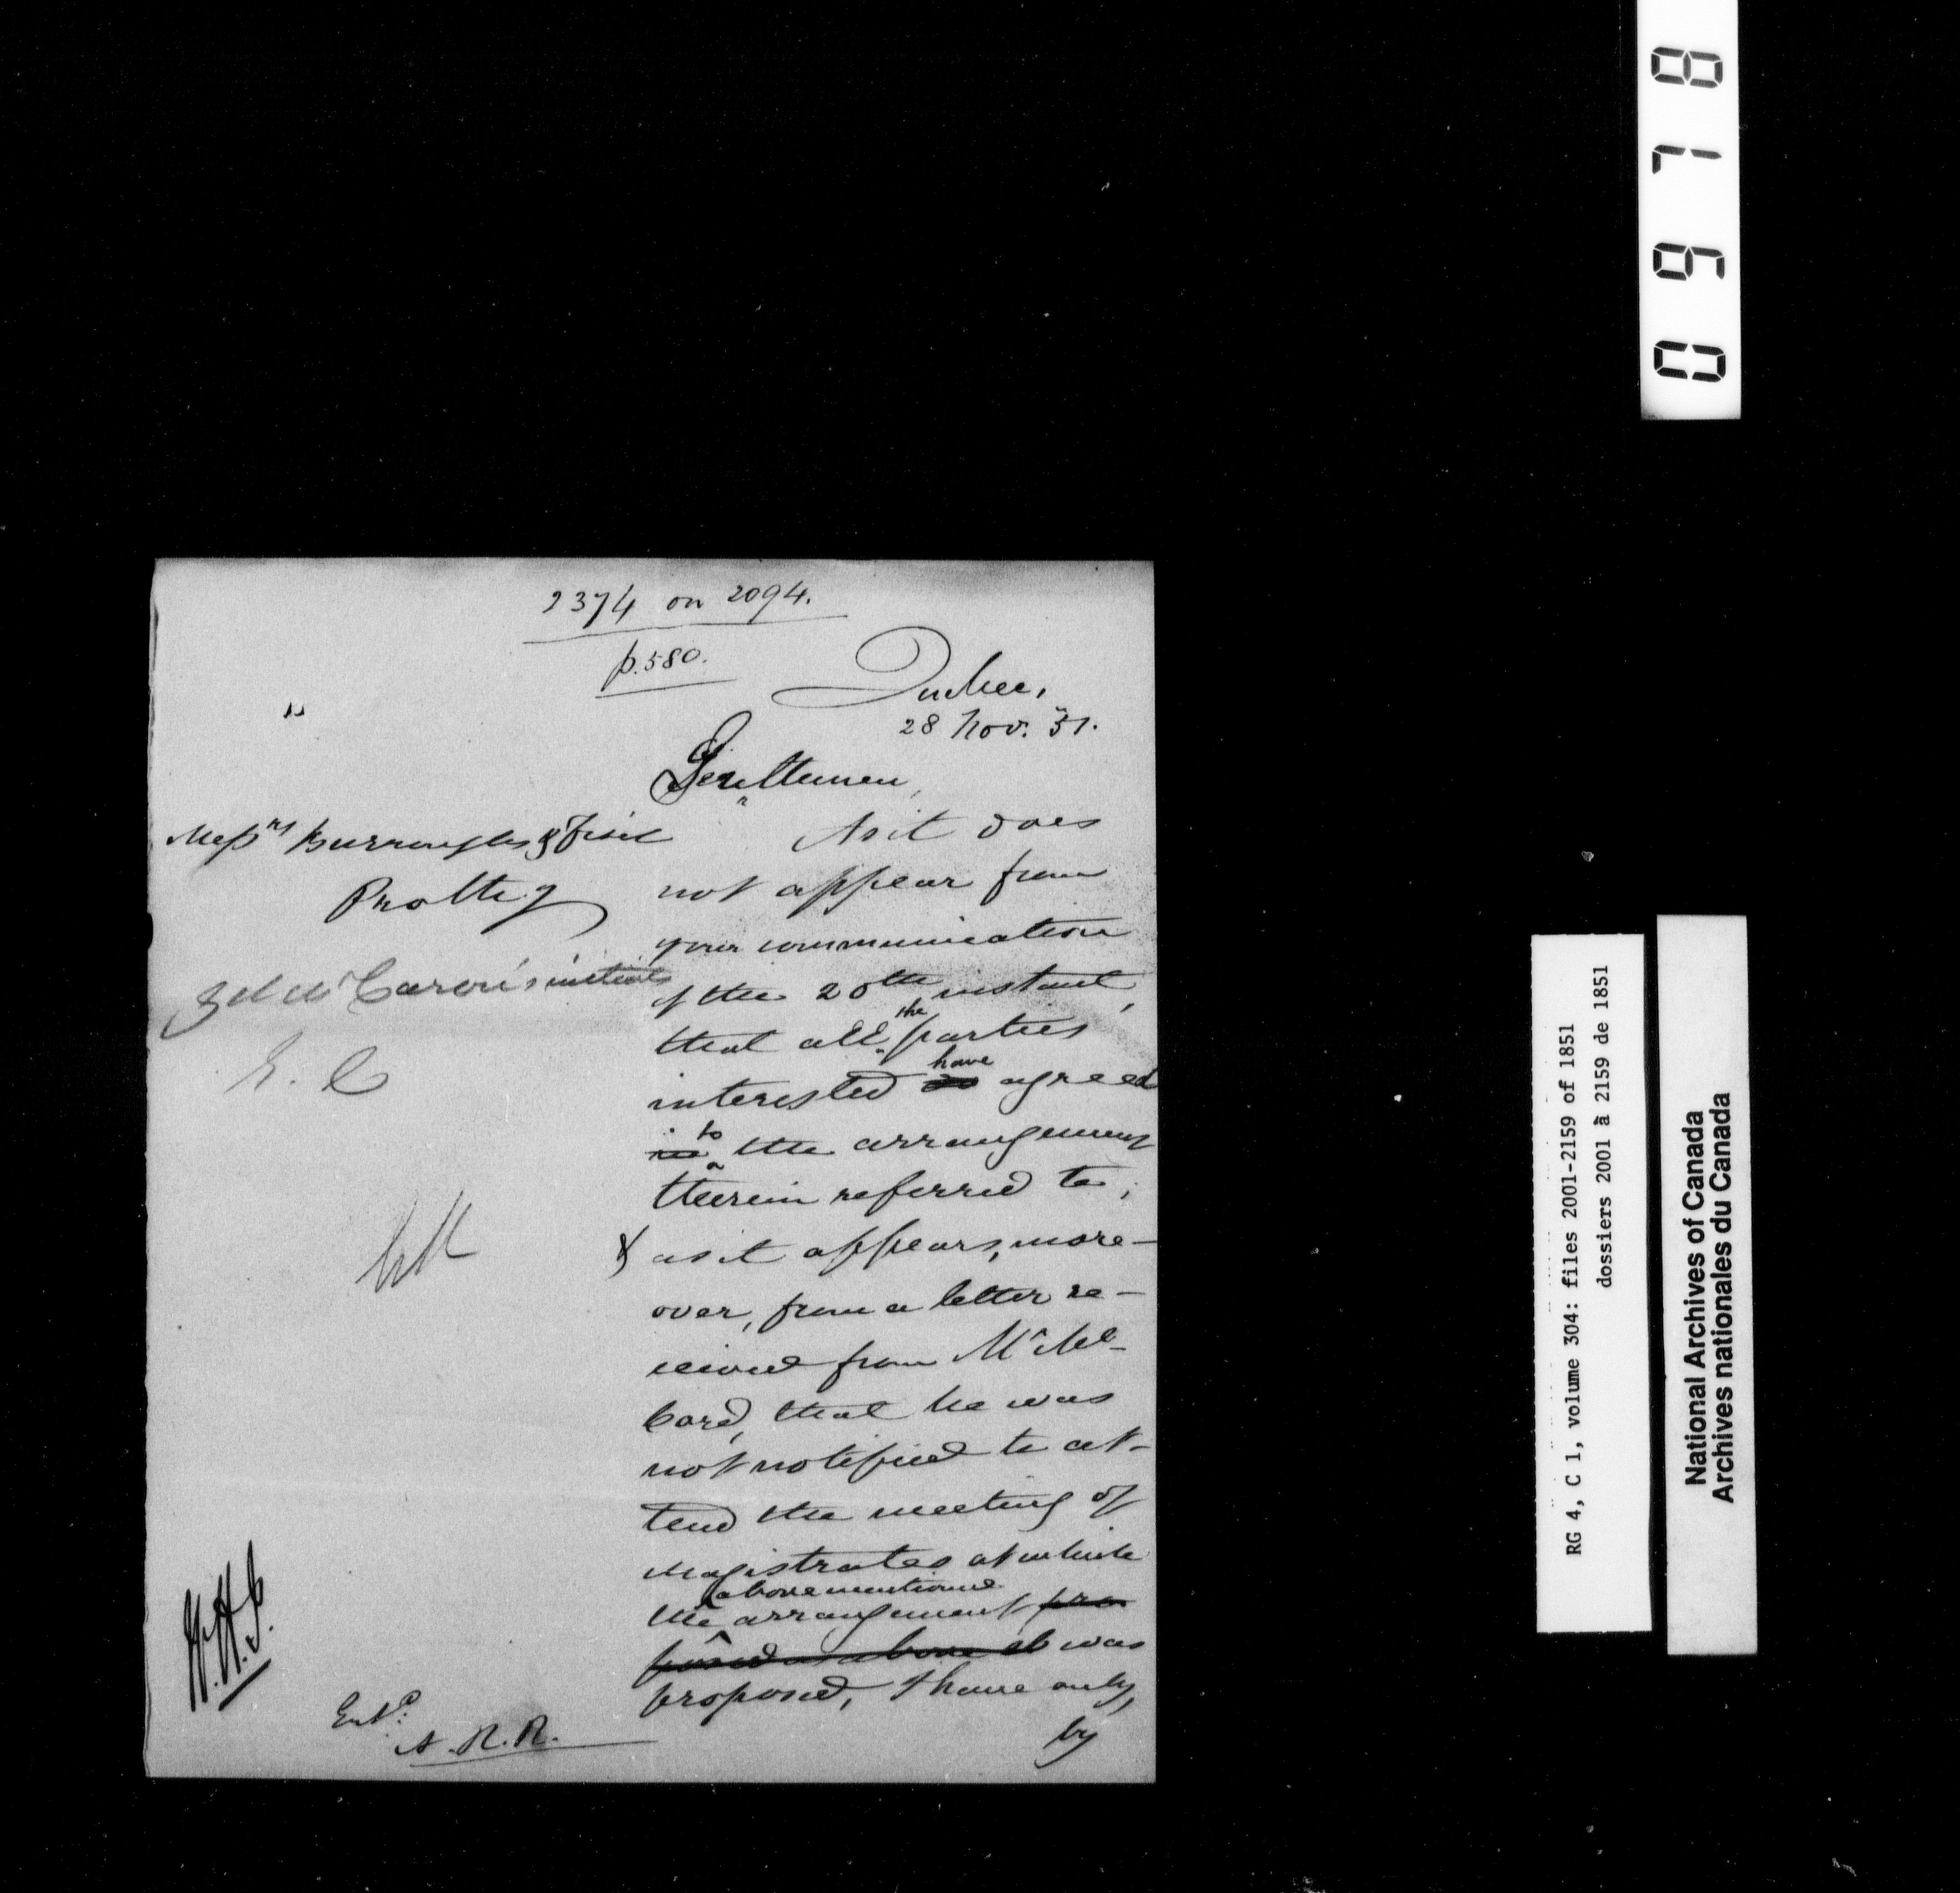 2374 on 2094.
p. 580.
Quebec,
28 Nov. 51.
Gentlemen,
Messrs Burroughs & Fiset
Prothy
As it does
not appear from
your communication
of the 20th instant,
that all the parties
interested have agreed
to the arrangement
therein referred to;
& as it appears, more-
over, from a letter re-
ceived from Mr
bard, that he was
not notified to at-
tend the meeting of
Magistrates at which
the abovementioned arrangement
was
proposed, I have only,
by
Mr Caron's initials
E. C
Entd:
A. R. R.
0978
RG 4, C 1, volume 304: files 2001-2159 of 1851
dossiers 2001 à 2159 de 1851
National Archives of Canada
Archives nationales du Canada